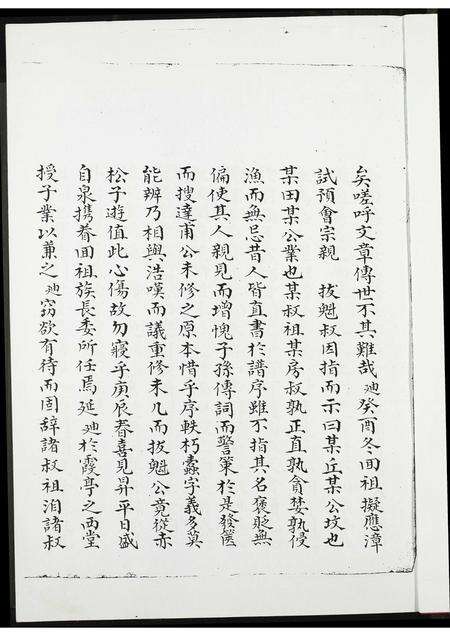 矣嗟呼文章傳世不其難哉廸癸酉冬回祖擬應漳
試預會宗親 拔魁叔因指而示曰某丘某公墳也
某田某公業也某叔祖某房叔孰正直孰貪婪孰侵
漁而無忌昔人皆直書於譜序雖不指其名褒貶無
偏使其人親見而增愧子孫傳詞而警策於是發篋
而搜達甫公未修之原本惜乎序軼朽蠹字義多莫
能辨乃相與浩嘆而議重修未几而拔魁公竟從赤
松子遊值此心傷故勿寢乎庚辰春喜見昇平日盛
自泉攜眷回祖族長委所任焉延廸於霞亭之西堂
授子業以兼之廸竊欲有待而固辞諸叔祖洎諸叔